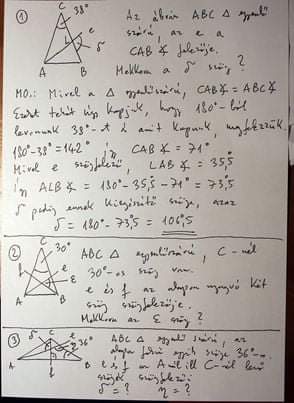 ① C 38° Az ábrán ABC △ egyenlő
szárú, az e a
e CAB ∢ felezője.
L δ Mekkora a δ szög?
A B
MO.: Mivel a △ egyenlőszárú, CAB∢ = ABC∢
Ezeket tehát úgy kapjuk, hogy 180°-ból
levonunk 38°-t & amit kapunk, megfelezzük.
180°-38° = 142° így CAB∢ = 71°
Mivel e szögfelező, LAB∢ = 35,5
így ALB∢ = 180° - 35,5 - 71° = 73,5
δ pedig ennek kiegészítő szöge, azaz
δ = 180° - 73,5 = 106,5
② C 30° ABC △ egyenlőszárú, C-nél
f 30°-os szög van.
e e és f az alapon nyugvó két
ε szög szögfelezője.
A B Mekkora az ε szög?
③ δ C e 36° ABC △ egyenlő szárú, az
alapon fekvő egyik szöge 36°-os.
A B e és f az A-nál ill C-nél levő
f szögek szögfelezői
δ = ? η = ?